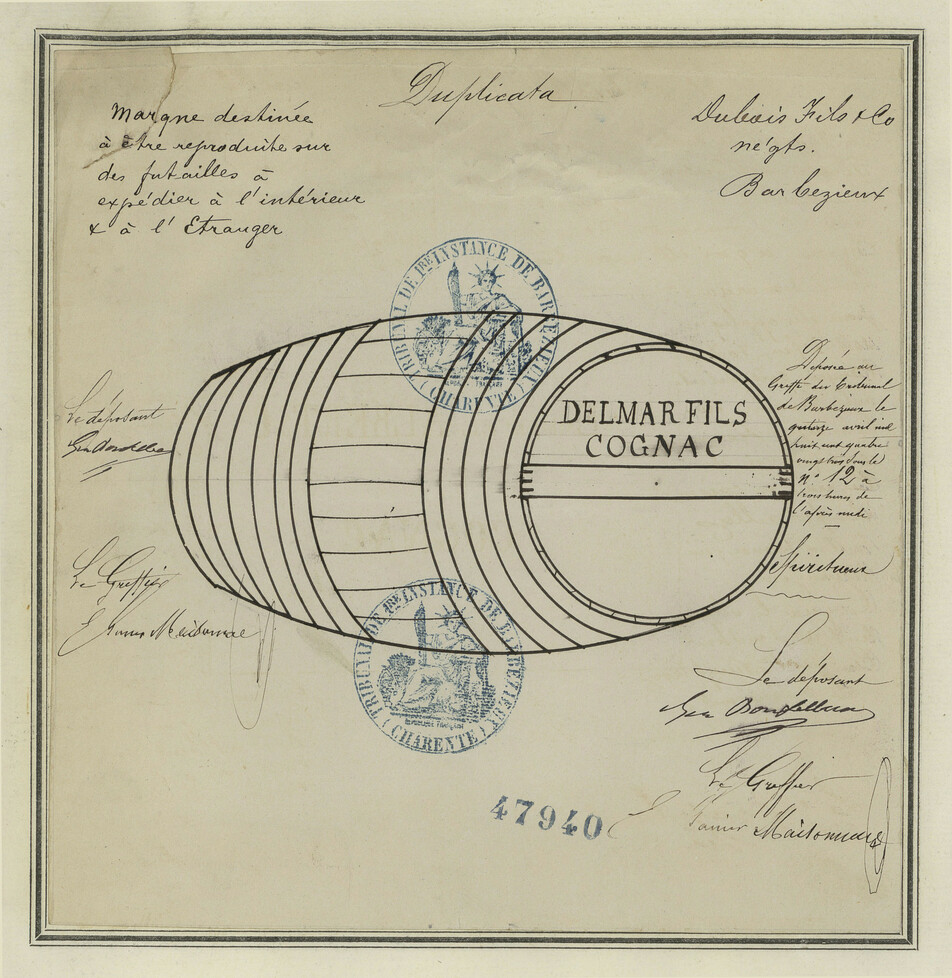 Duplicata
Marque destinée
à être reproduite sur
des futailles à
expédier à l'intérieur
& à l'Etranger
Dubois Fils & Co
négts.
Barbezieux
TRIBUNAL DE 1RE INSTANCE DE BARBEZIEUX
(CHARENTE)
DELMAR FILS
COGNAC
Déposé au
Greffe du Tribunal
de Barbezieux le
quinze avril mil
huit cent quatre
vingt trois sous le
n° 12 à
trois heures de
l'après midi
Spiritueux
Le déposant
Le Greffier
TRIBUNAL DE 1RE INSTANCE DE BARBEZIEUX
REPUBLIQUE FRANÇAISE
(CHARENTE)
Le déposant
Le Greffier
47940